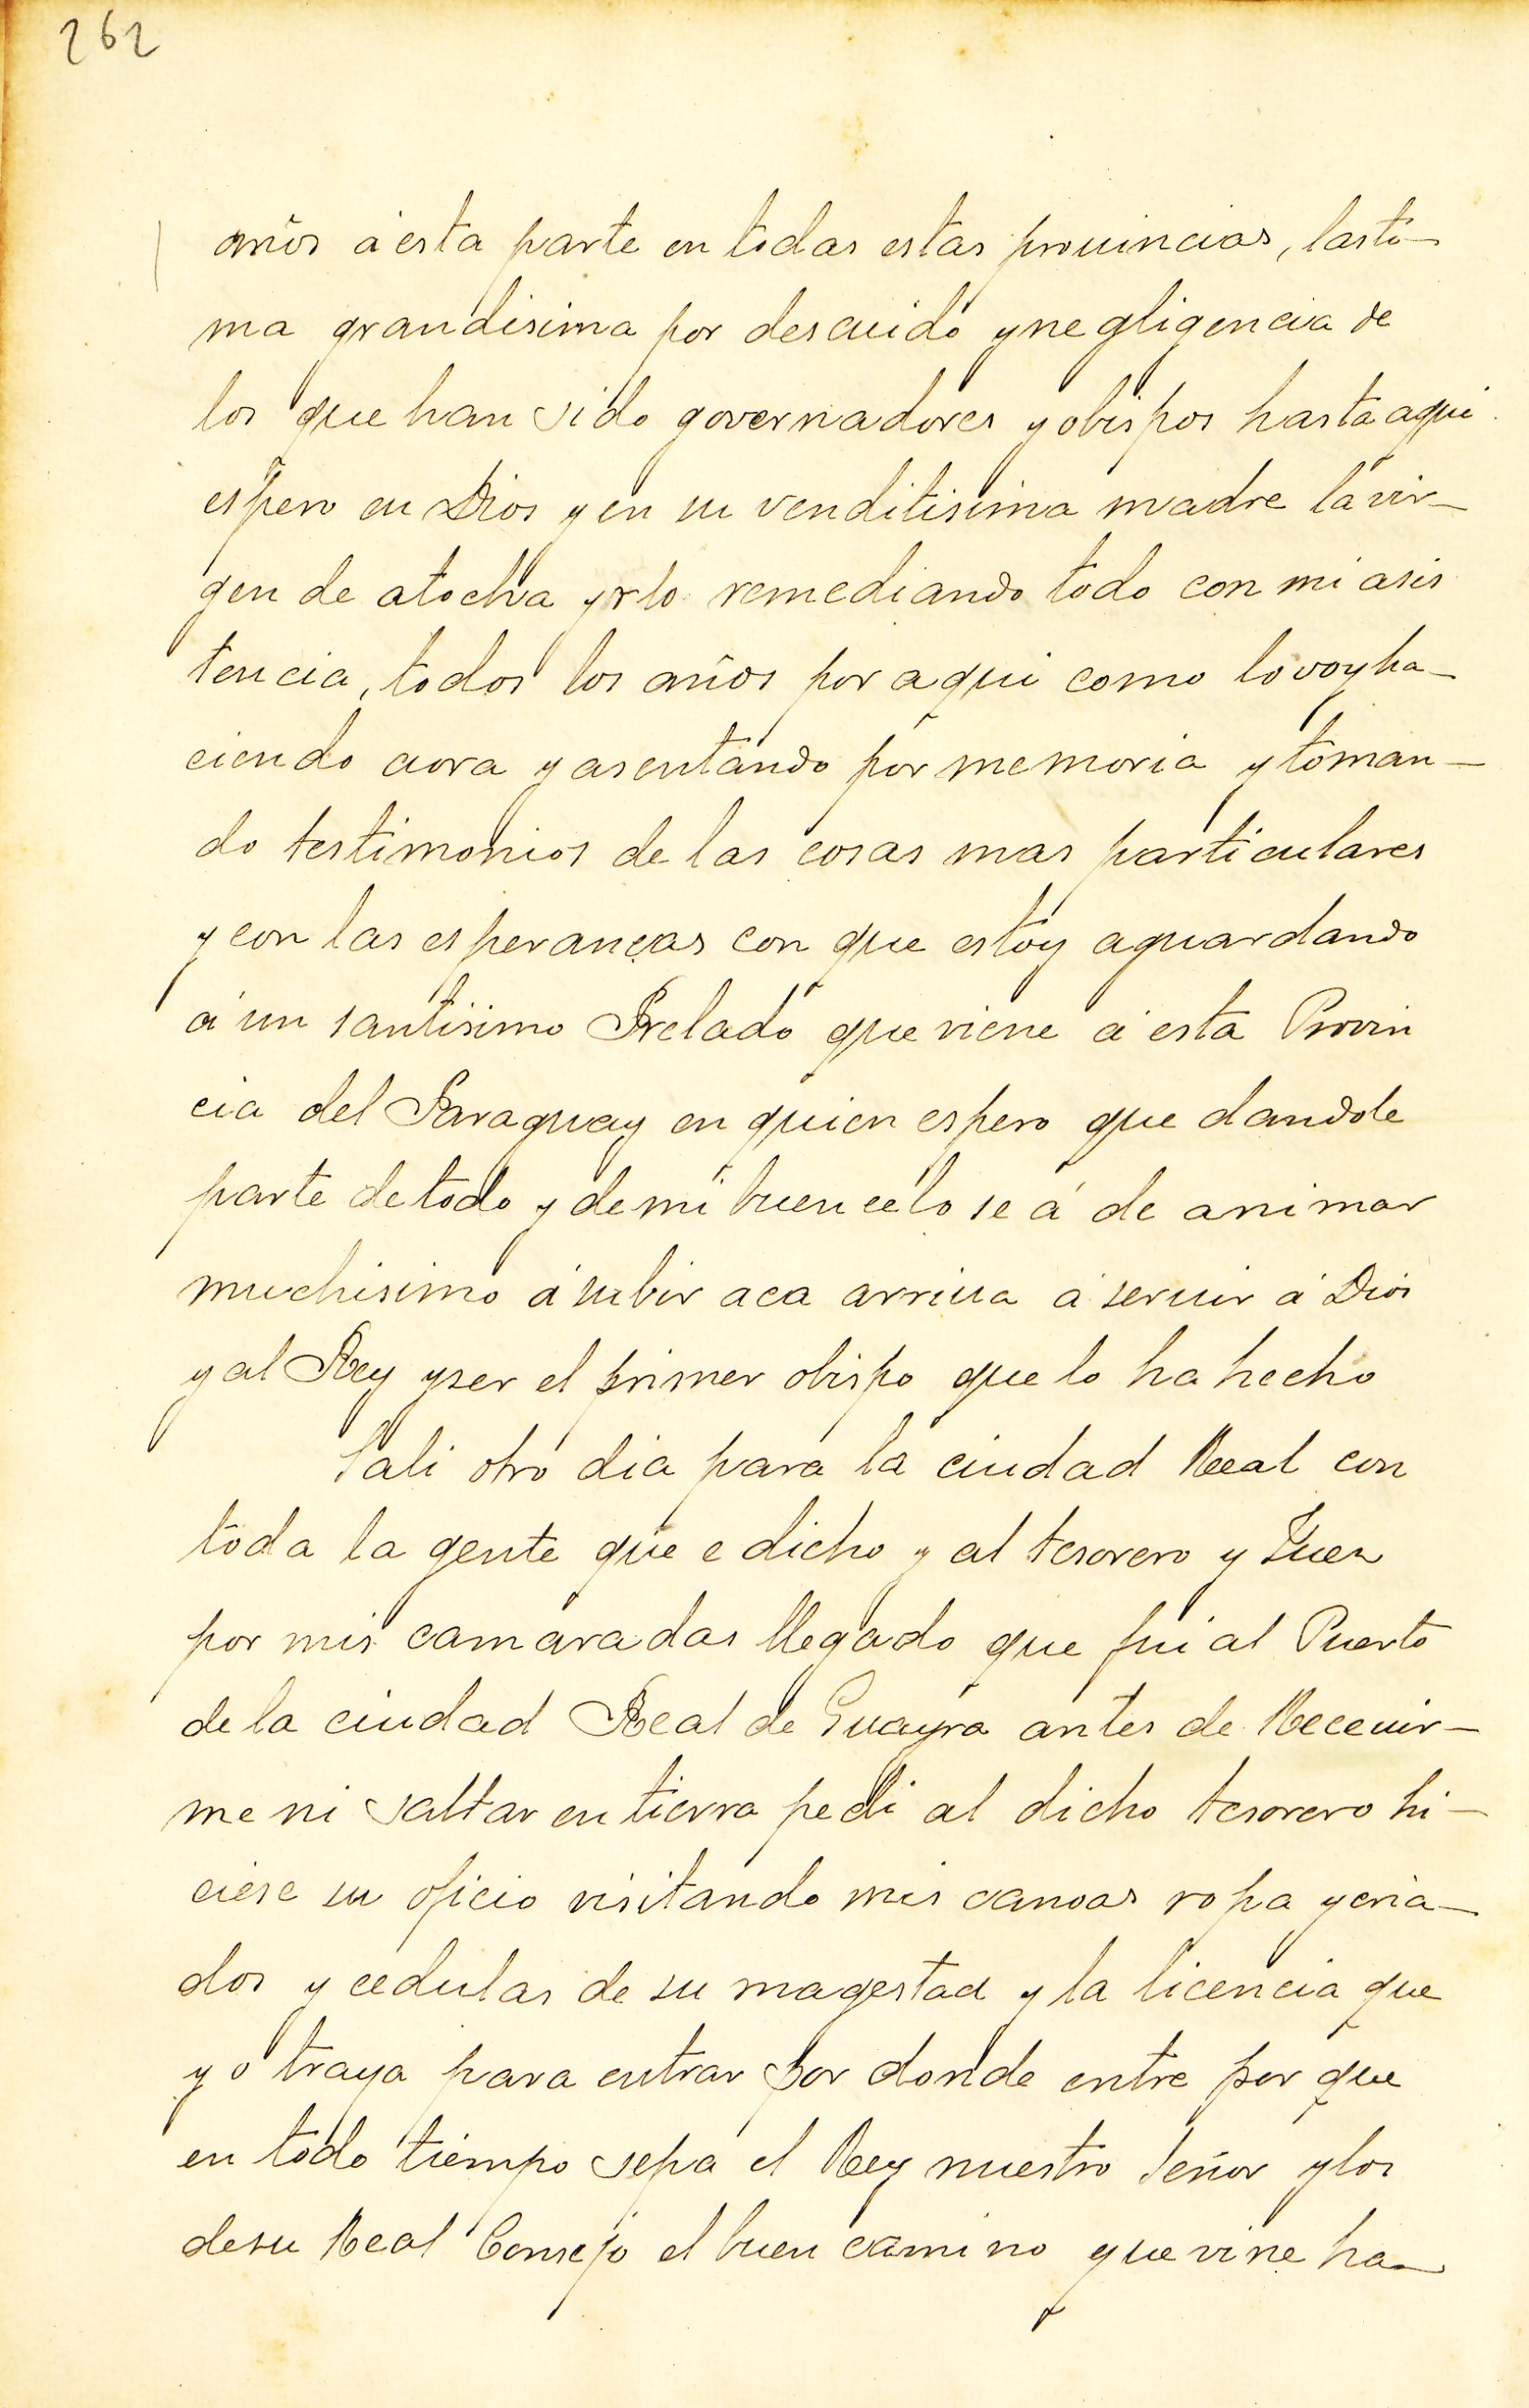 262
años á esta parte en todas estas prouincias, lasti-
ma grandisima por descuido y negligencia de
los que han sido governadores y obispos hasta aqui.
espero en Dios y en su venditisima madre la vir-
gen de atocha yrlo remediando todo con mi asis
tencia, todos los años por aqui como lo voy ha-
ciendo aora y asentando por memoria y toman-
do testimonios de las cosas mas particulares
y con las esperanças con que estoy aguardando
á un santisimo Prelado que viene á esta Provin
cia del Paraguay en quien espero que dandole
parte de todo y de mi buen celo se á de animar
muchisimo á subir aca arriua á seruir á Dios
y al Rey y ser el primer obispo que lo ha hecho
Sali otro dia para la ciudad Real con
toda la gente que e dicho y al tesorero y Juez
por mis camaradas llegado que fui al Puerto
de la ciudad Real de Guayra antes de Receuir-
me ni saltar en tierra pedi al dicho tesorero hi-
ciese su oficio visitando mis canoas ropa y cria-
dos y cedulas de su magestad y la licencia que
yo traya para entrar por donde entre por que
en todo tiempo sepa el Rey nuestro Señor y los
de su Real Consejo el buen camino que vine ha-